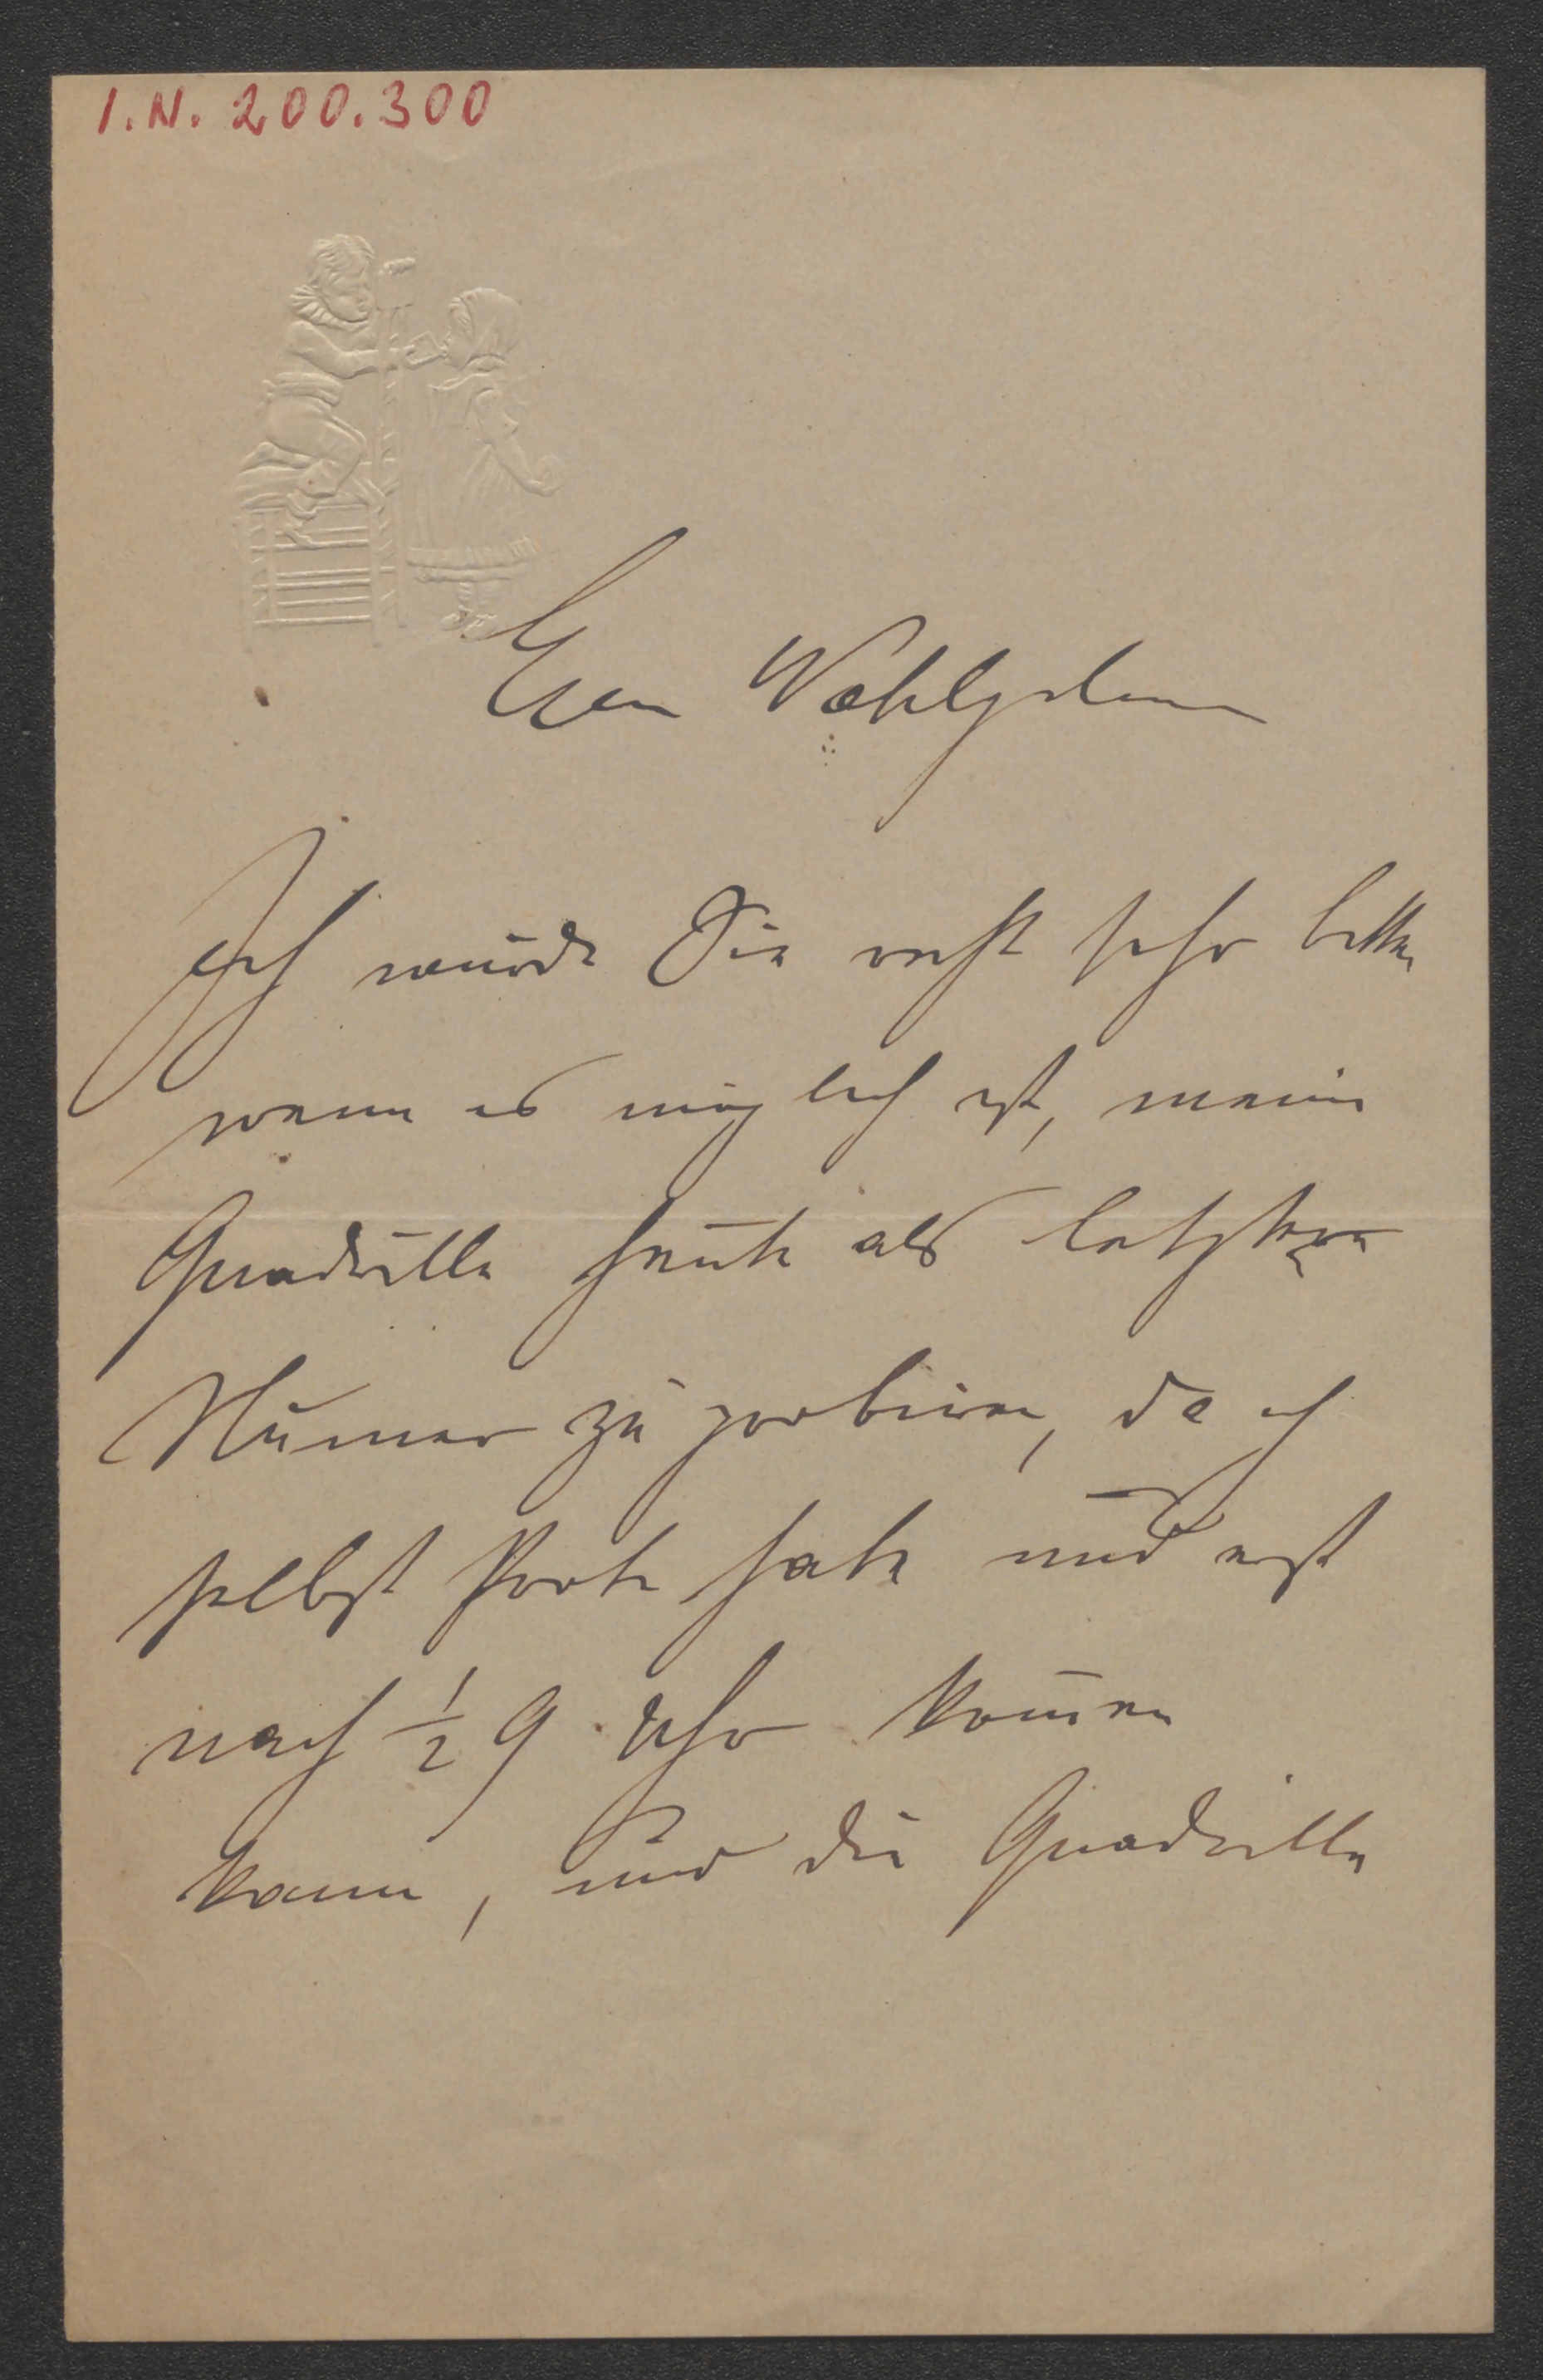 I.N. 200.300
Euer Wohlgeboren
Ich würde Sie recht sehr bitten
wenn es möglich ist, meine
Quadrille heute als letztere
Numer zu probiren, da ich
selbst Probe habe und erst
nach ½ 9 Uhr kom̅en
kann, und die Quadrille